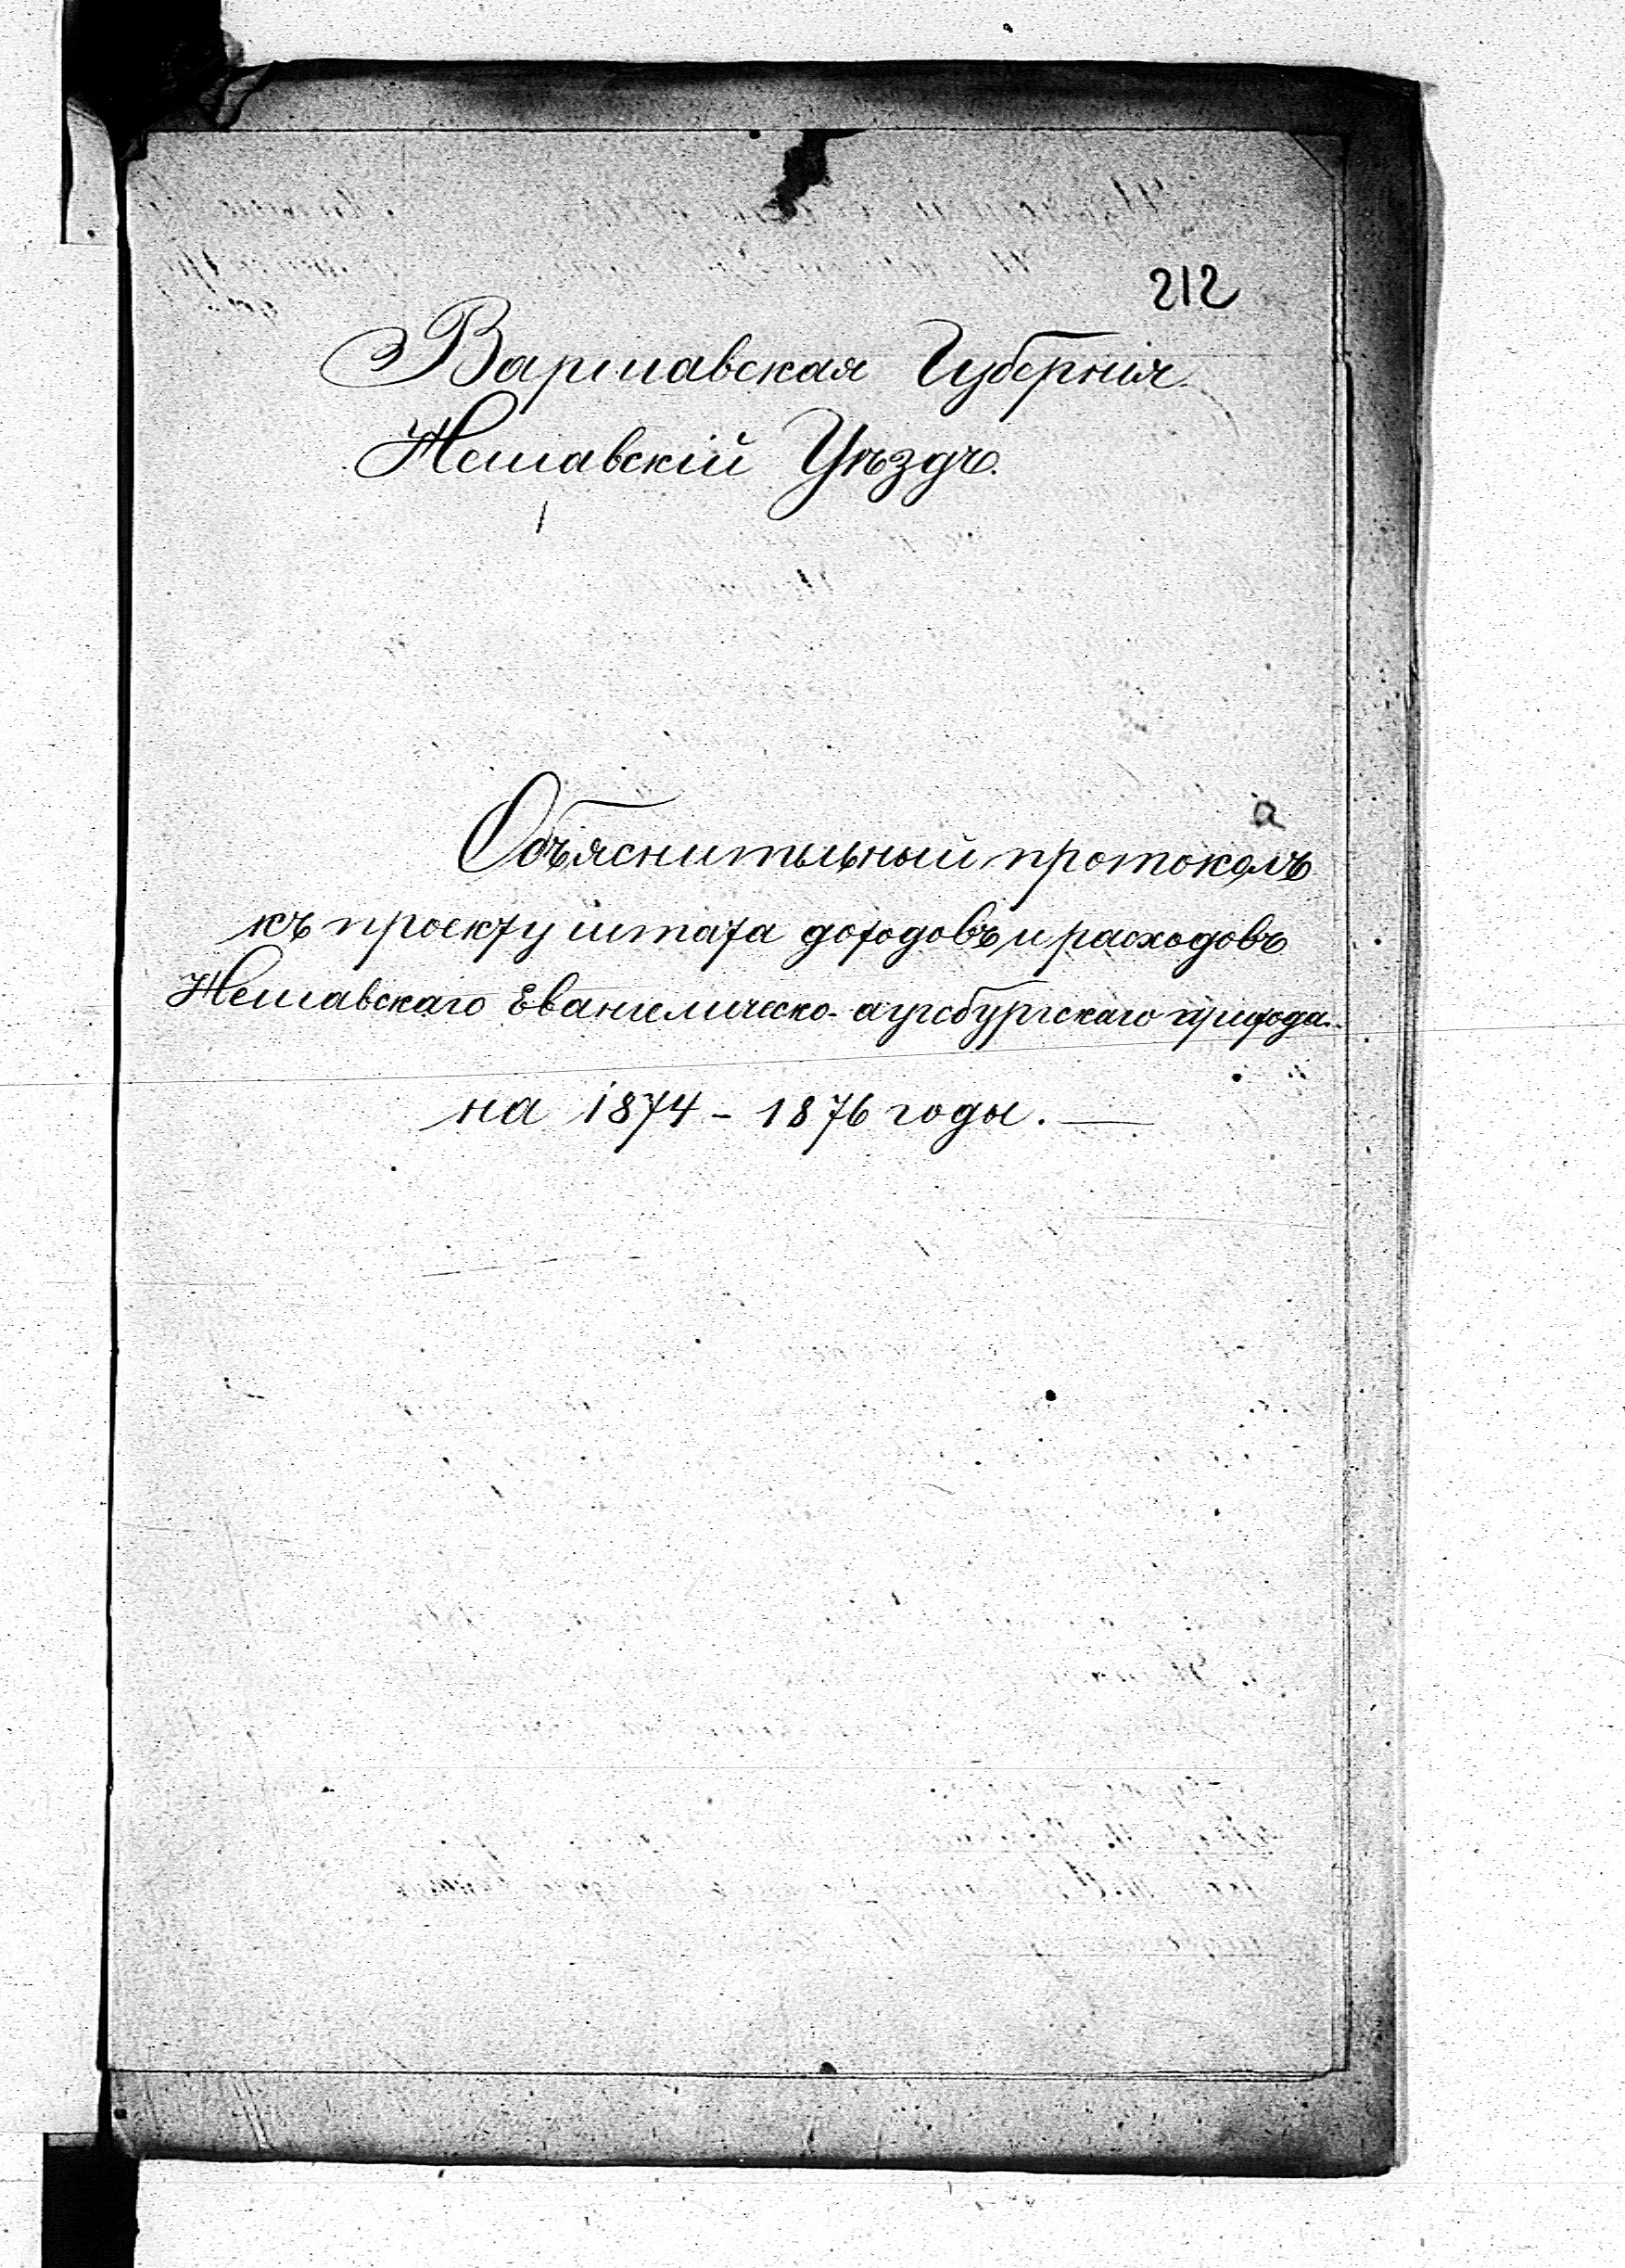 212
Варшавская Губернія.
Нешавскій Уѣздъ.
Объяснительный протоколъ
къ проекту штата доходовъ и расходовъ
Нешавскаго Евангелическо-аугсбургскаго прихода
на 1874 - 1876 годы. —